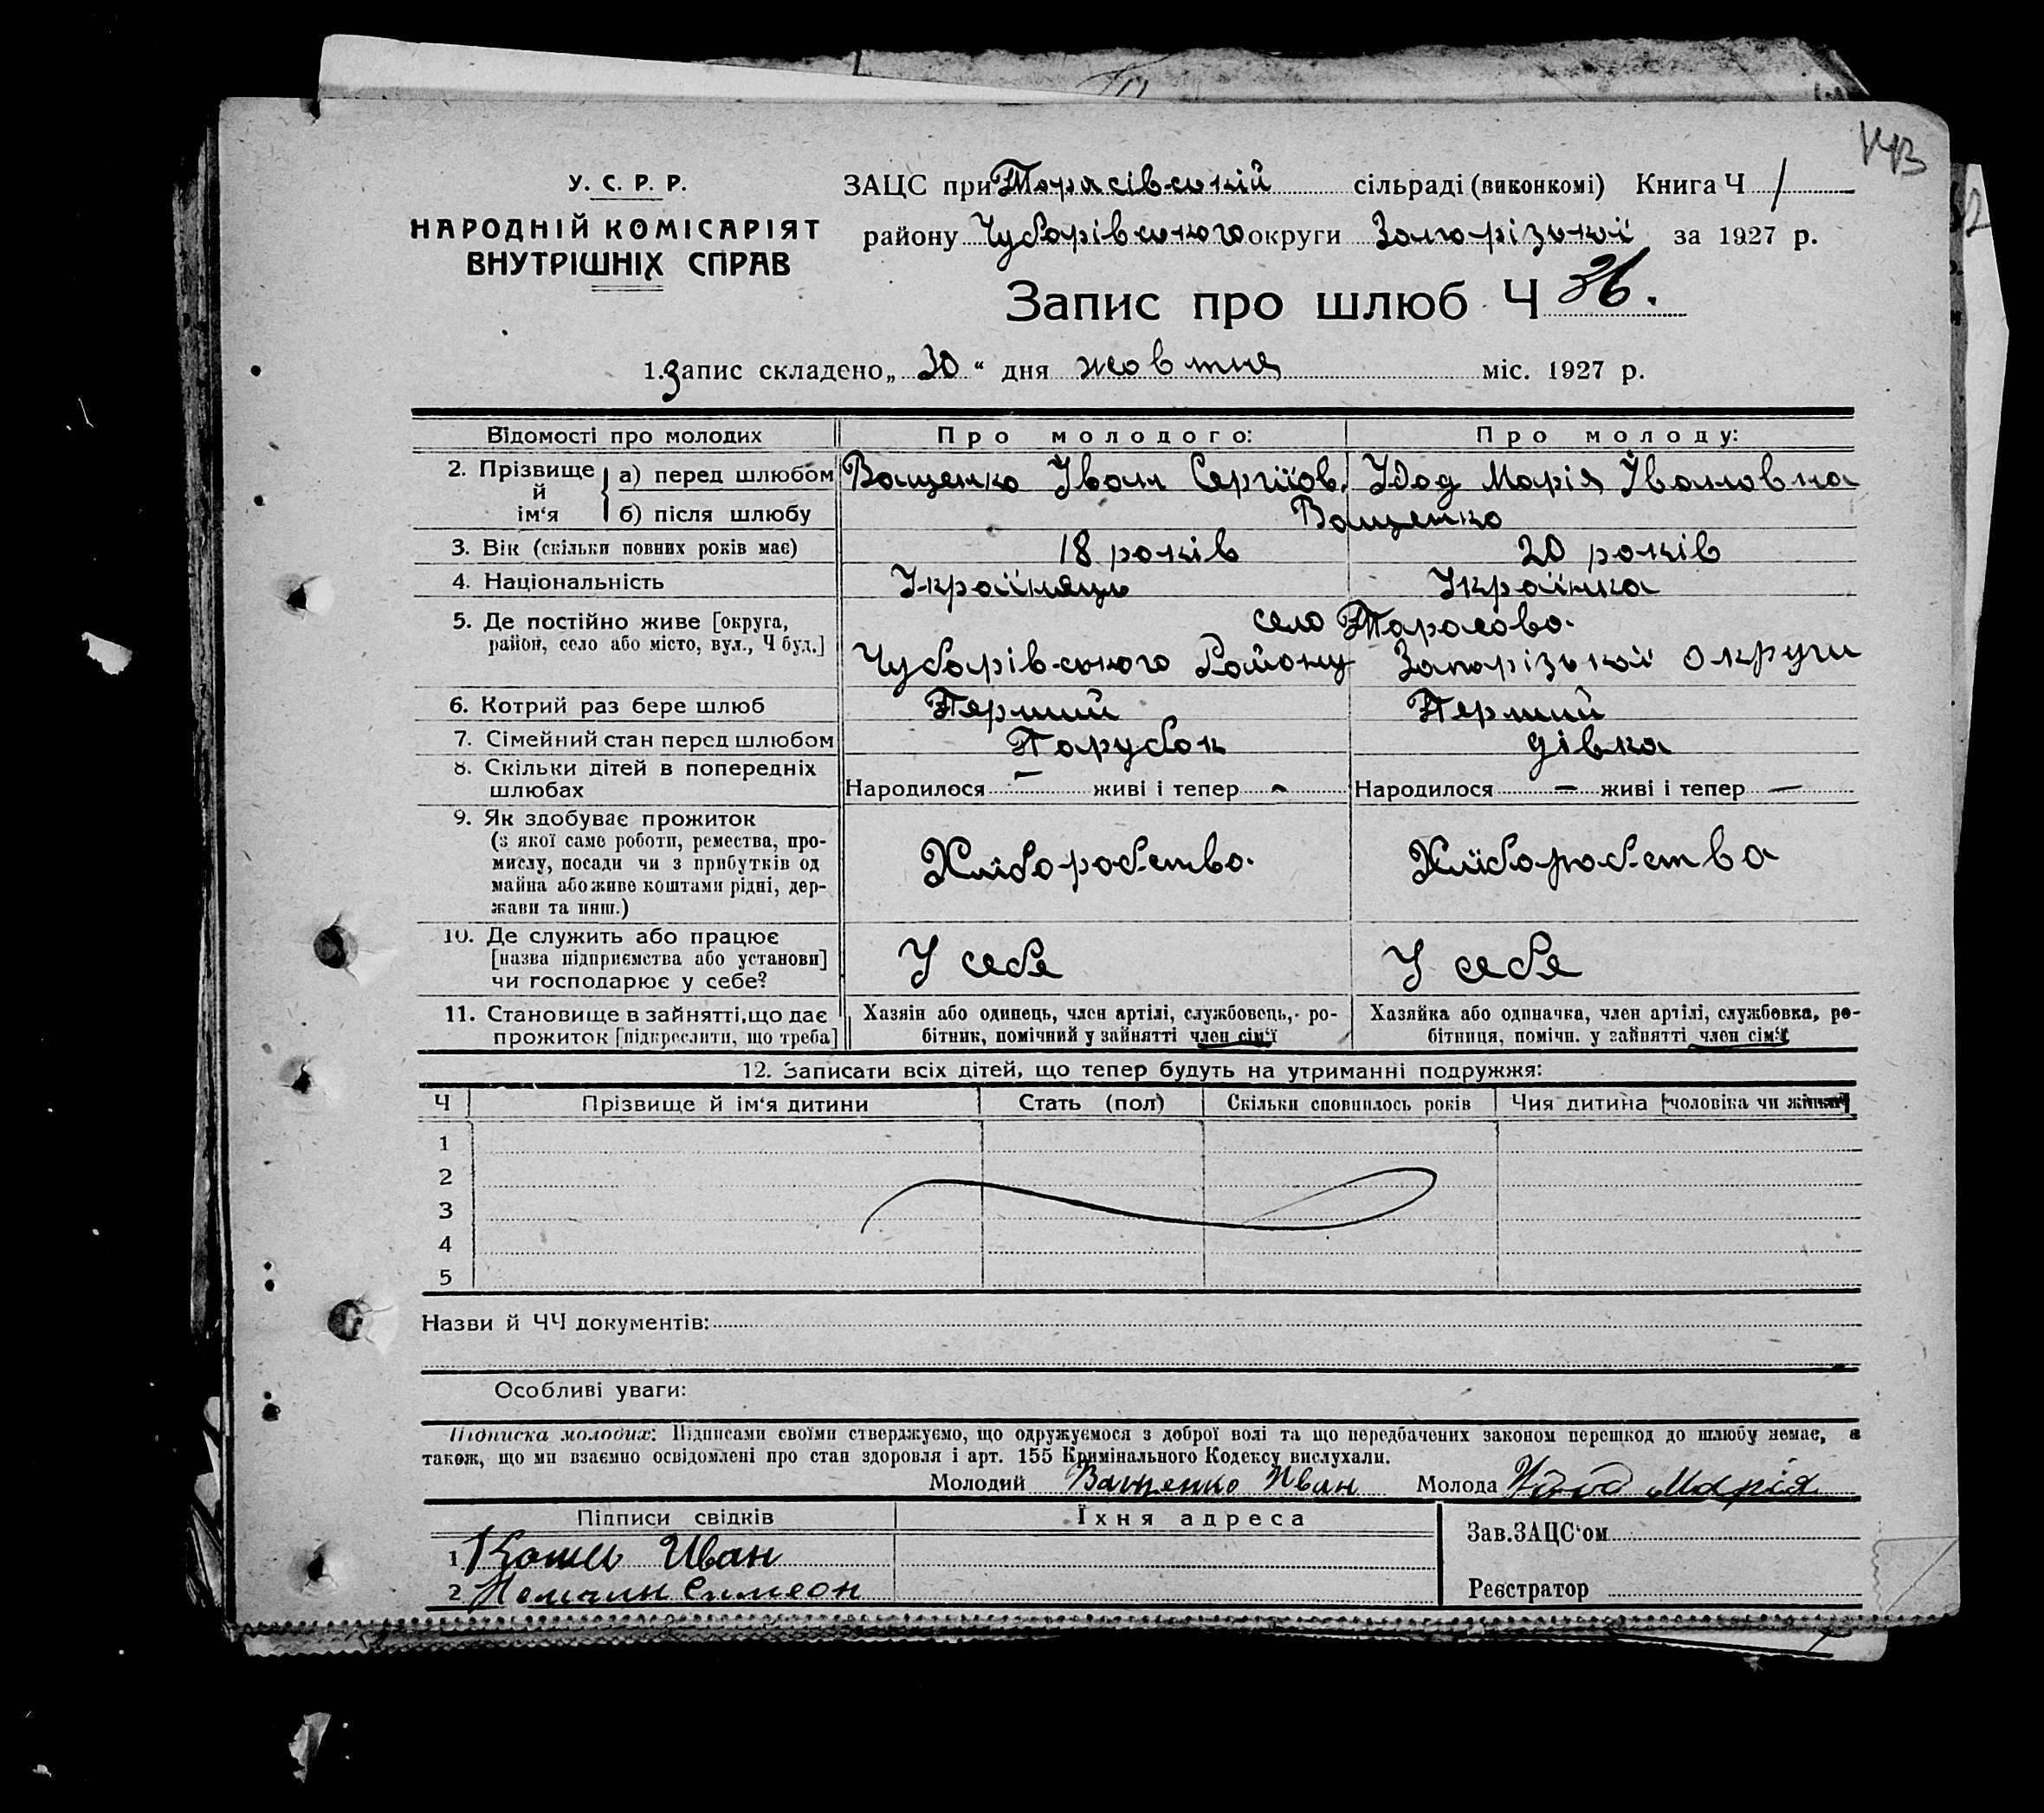 143
У. С. Р. Р.
НАРОДНІЙ КОМІСАРІЯТ
ВНУТРІШНІХ СПРАВ
ЗАЦС при Тарасівській сільраді (виконкомі) Книга Ч 1
району Чубарівського округи Запорізької за 1927 р.
Запис про шлюб Ч 36.
1. Запис складено „ 30 “ дня жовтня міс. 1927 р.
Відомості про молодих
Про молодого:
Про молоду:
2. Прізвище й ім‘я
а) перед шлюбом
Ващенко Іван Сергіїов.
Удод Марія Івановна
б) після шлюбу
Ващенко
3. Вік (скільки повних років має)
18 років
20 років
4. Національність
Украіняць
Украінка
5. Де постійно живе [округа,
район, село або місто, вул., Ч буд.]
село Тарасово.
Чубарівського Району Запорізькоі Округи
6. Котрий раз бере шлюб
Перший
Перший
7. Сімейний стан перед шлюбом
Парубок
дівка
8. Скільки дітей в попередніх
шлюбах
Народилося – живі і тепер –
Народилося – живі і тепер –
9. Як здобуває прожиток
(з якої саме роботи, ремества, про-
мислу, посади чи з прибутків од
майна або живе коштами рідні, дер-
жави та инш.)
Хліборобство.
Хліборобства
10. Де служить або працює
[назва підприємства або установи]
чи господарює у себе?
У себя
У себя
11. Становище в зайнятті, що дає
прожиток [підкреслити, що треба]
Хазяін або одинець, член артілі, службовець, ро-
бітник, помічний у зайнятті член сім‘ї
Хазяйка або одиначка, член артілі, службовка, ро-
бітниця, помічн. у зайнятті член сім‘ї
12. Записати всіх дітей, що тепер будуть на утриманні подружжя:
Ч
Прізвище й ім‘я дитини
Стать (пол)
Скільки сповнилось років
Чия дитина [чоловіка чи жінки]
1
2
3
4
5
Назви й ЧЧ документів:
Особливі уваги:
Підписка молодих: Підписами своїми стверджуємо, що одружуємося з доброї волі та що передбачених законом перешкод до шлюбу немає, а
також, що ми взаємно освідомлені про стан здоровля і арт. 155 Кримінального Кодексу вислухали.
Молодий Ващенко Иван Молода Удод Марія
Підписи свідків
Їхня адреса
Зав. ЗАЦС‘ом
1 Иван
2 Симеон
Реєстратор